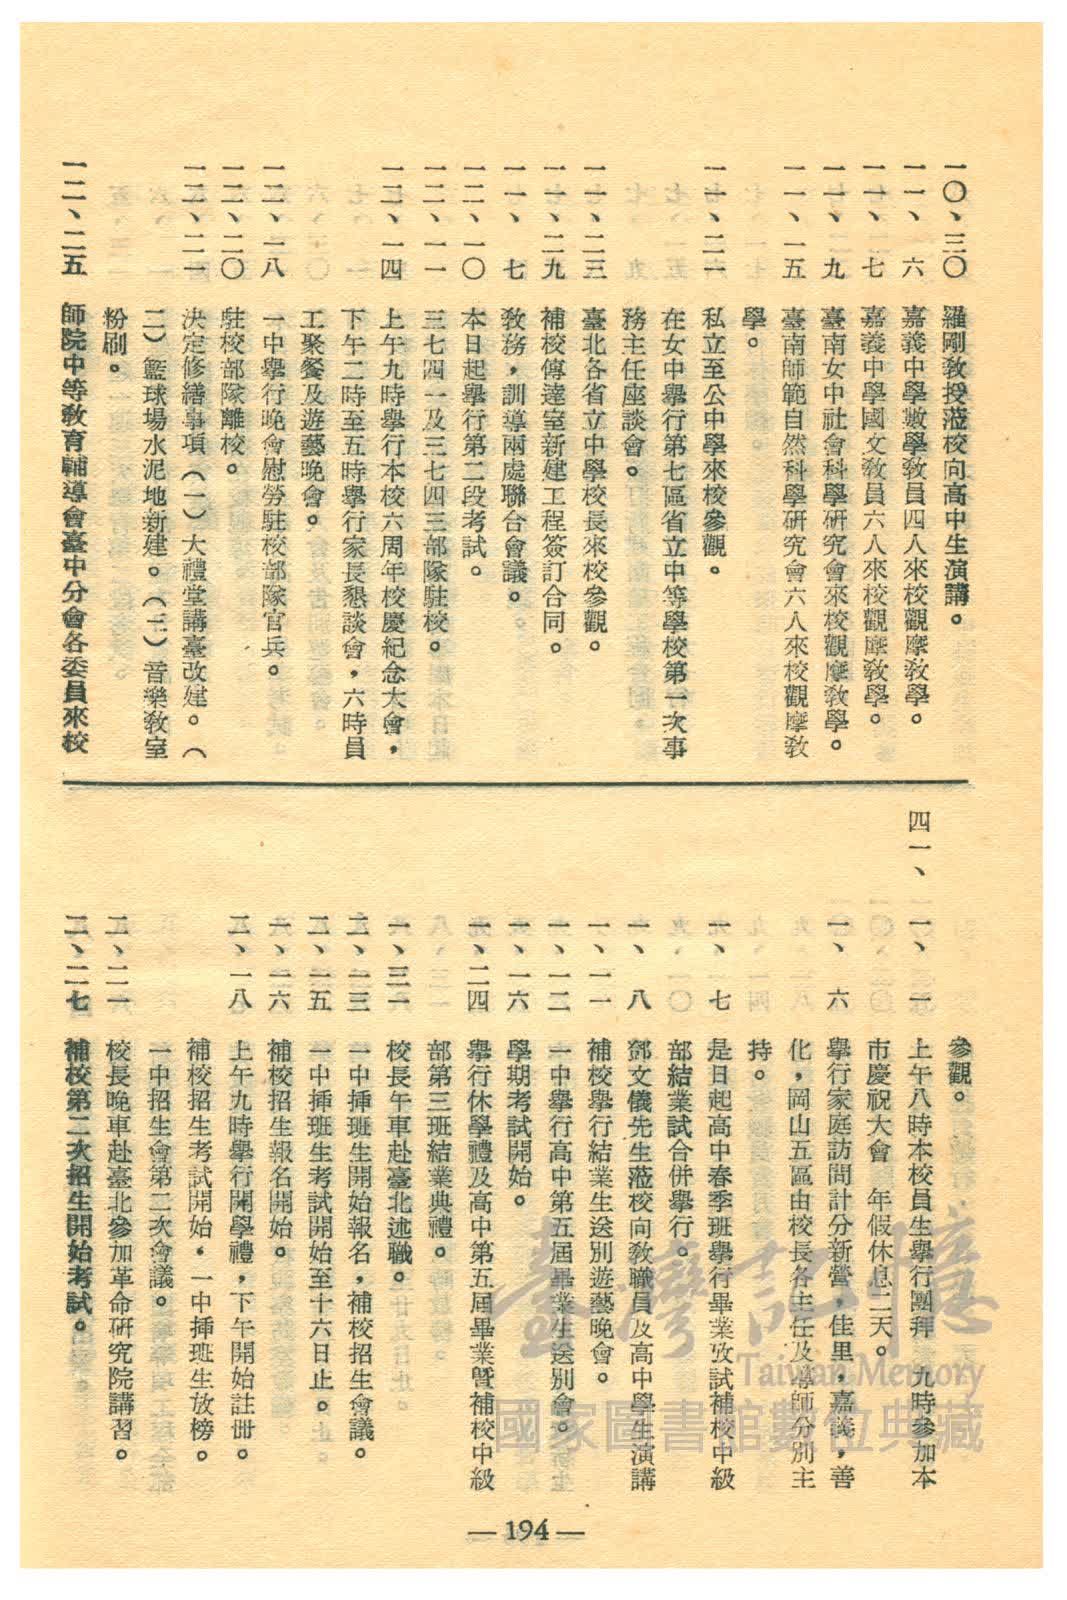 一〇、三〇 羅剛教授蒞校向高中生演講。
一一、六 嘉義中學數學教員四人來校觀摩教學。
一一、七 嘉義中學國文教員六人來校觀摩教學。
一一、九 臺南女中社會科學研究會來校觀摩教學。
一一、一五 臺南師範自然科學研究會六人來校觀摩教
學。
一一、二一 私立至公中學來校參觀。
在女中舉行第七區省立中等學校第一次事
務主任座談會。
一一、二三 臺北各省立中學校長來校參觀。
一一、二九 補校傳達室新建工程簽訂合同。
一二、七 教務，訓導兩處聯合會議。
一二、一〇 本日起舉行第二段考試。
一二、一一 三七四一及三七四三部隊駐校。
一二、一四 上午九時舉行本校六周年校慶紀念大會，
下午二時至五時舉行家長懇談會，六時員
工聚餐及遊藝晚會。
一二、一八 一中舉行晚會慰勞駐校部隊官兵。
一二、二〇 駐校部隊離校。
一二、二一 決定修繕事項（一）大禮堂講臺改建。（
二）籃球場水泥地新建。（三）音樂教室
粉刷。
一二、二五 師院中等教育輔導會臺中分會各委員來校
參觀。
四一、一、一 上午八時本校員生舉行團拜 九時參加本
市慶祝大會 年假休息二天。
一、六 舉行家庭訪問計分新營，佳里，嘉義，善
化，岡山五區由校長各主任及導師分別主
持。
一、七 是日起高中春季班舉行畢業攷試補校中級
部結業試合併舉行。
一、八 鄧文儀先生蒞校向教職員及高中學生演講
一、一一 補校舉行結業生送別遊藝晚會。
一、一二 一中舉行高中第五屆畢業生送別會。
一、一六 學期考試開始。
一、二四 舉行休學禮及高中第五屆畢業曁補校中級
部第三班結業典禮。
一、三一 校長午車赴臺北述職。
二、一三 一中挿班生開始報名，補校招生會議。
二、一五 一中挿班生考試開始至十六日止。
二、一六 補校招生報名開始。
二、一八 上午九時舉行開學禮，下午開始註册。
補校招生考試開始，一中挿班生放榜。
一中招生會第二次會議。
二、二一 校長晚車赴臺北參加革命研究院講習。
二、二七 補校第二次招生開始考試。
—194—
臺灣記憶
Taiwan Memory
國家圖書館數位典藏